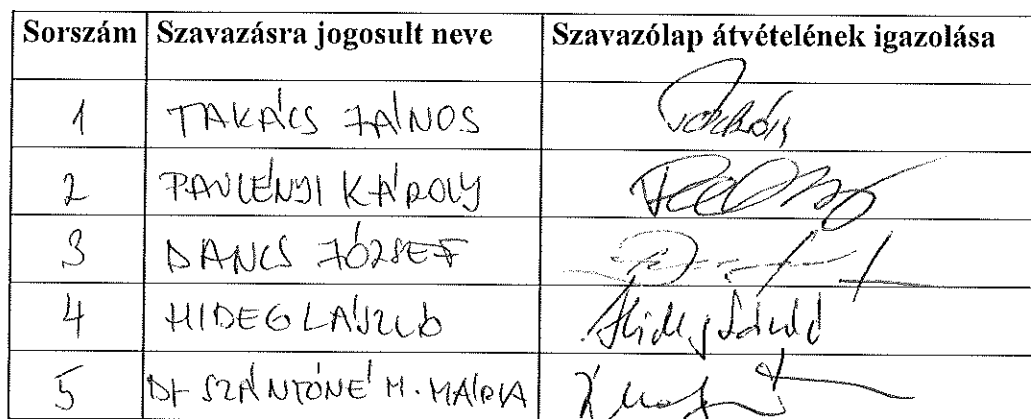 Sorszám Szavazásra jogosult neve Szavazólap átvételének igazolása
1 TAKÁCS JÁNOS
2 PAVLÉNYI KÁROLY
3 DANCS JÓZSEF
4 HIDEG LÁSZLÓ Hideg László
5 DR SZÁNTÓNÉ M. MÁRIA